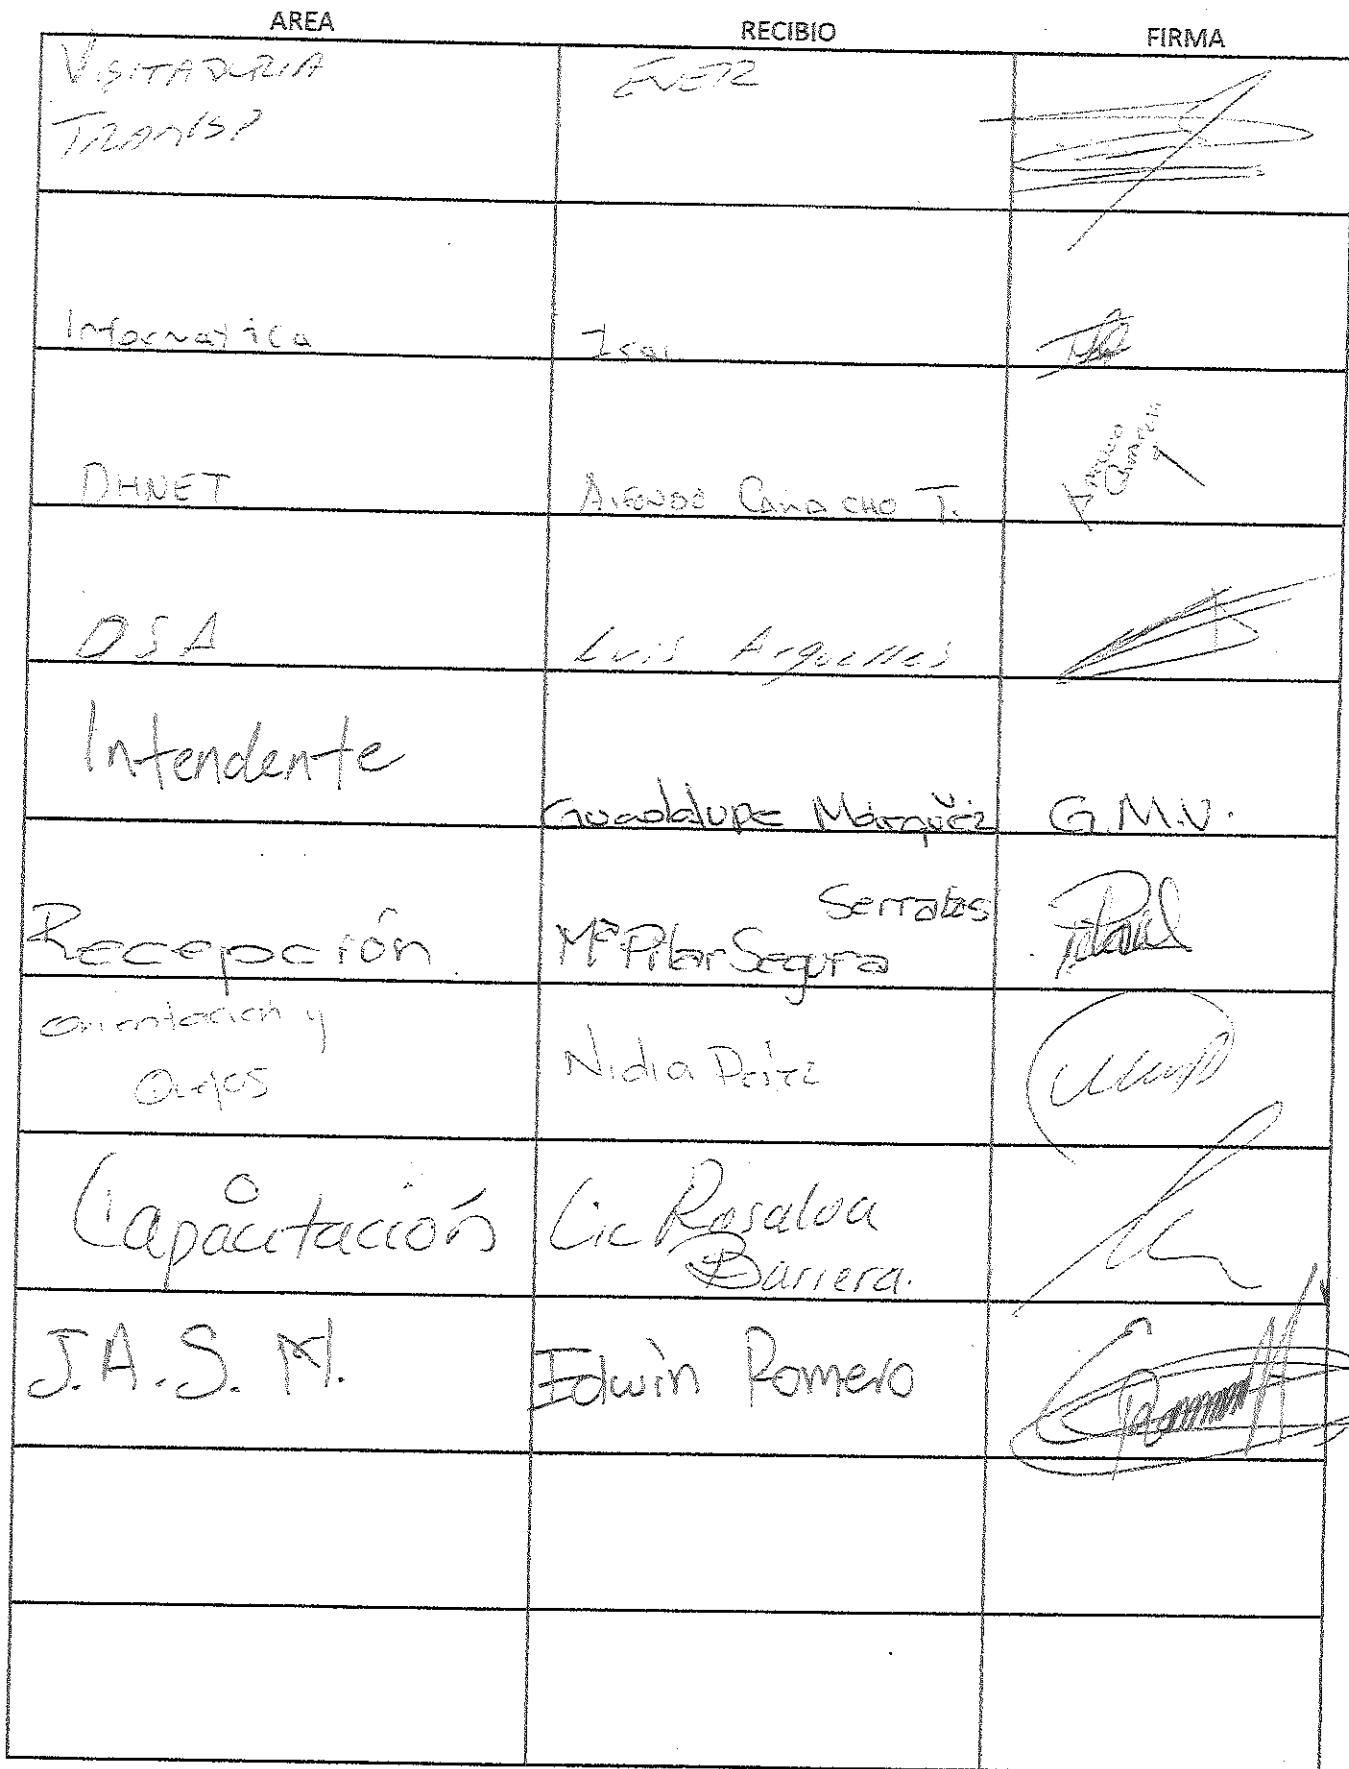 AREA RECIBIO FIRMA
VISITADURIA EVER
TRANSP
Informatica Isai
DHNET Alfonso Camacho T.
DSA Luis Arguelles
Intendente
Guadalupe Márquez G.M.V.
Serratos
Recepción Mª Pilar Segura
Orientacion y
Quejas Nidia Pérez
Capacitación Lic Rosalva
Barrera.
J.A.S.M. Edwin Romero